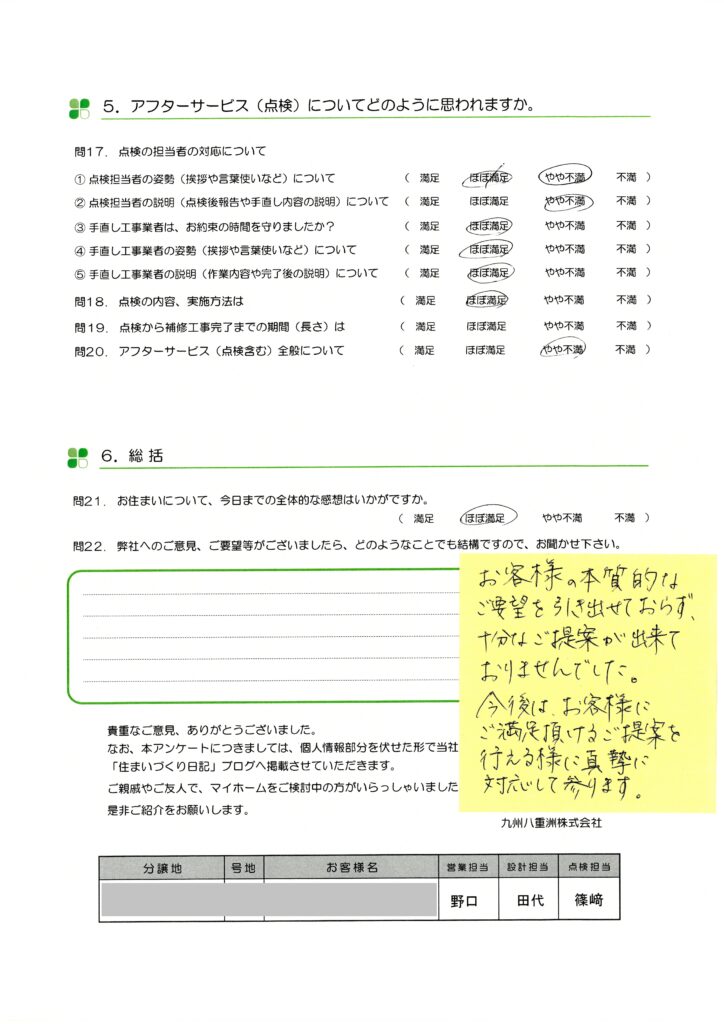 5．アフターサービス（点検）についてどのように思われますか。
問17．点検の担当者の対応について
①点検担当者の姿勢（挨拶や言葉使いなど）について （ 満足 ほぼ満足 やや不満 不満 ）
②点検担当者の説明（点検後報告や手直し内容の説明）について （ 満足 ほぼ満足 やや不満 不満 ）
③手直し工事業者は、お約束の時間を守りましたか？ （ 満足 ほぼ満足 やや不満 不満 ）
④手直し工事業者の姿勢（挨拶や言葉使いなど）について （ 満足 ほぼ満足 やや不満 不満 ）
⑤手直し工事業者の説明（作業内容や完了後の説明）について （ 満足 ほぼ満足 やや不満 不満 ）
問18．点検の内容、実施方法は （ 満足 ほぼ満足 やや不満 不満 ）
問19．点検から補修工事完了までの期間（長さ）は （ 満足 ほぼ満足 やや不満 不満 ）
問20．アフターサービス（点検含む）全般について （ 満足 ほぼ満足 やや不満 不満 ）
6．総括
問21．お住まいについて、今日までの全体的な感想はいかがですか。
（ 満足 ほぼ満足 やや不満 不満 ）
問22．弊社へのご意見、ご要望等がございましたら、どのようなことでも結構ですので、お聞かせ下さい。
お客様の本質的な
ご要望を引き出せておらず、
十分なご提案が出来て
おりませんでした。
今後は、お客様に
ご満足頂けるご提案を
行える様に真摯に
対応して参ります。
貴重なご意見、ありがとうございました。
なお、本アンケートにつきましては、個人情報部分を伏せた形で当社
「住まいづくり日記」ブログへ掲載させていただきます。
ご親戚やご友人で、マイホームをご検討中の方がいらっしゃいました
是非ご紹介をお願いします。
九州八重洲株式会社
分譲地 号地 お客様名 営業担当 設計担当 点検担当
野口 田代 篠﨑